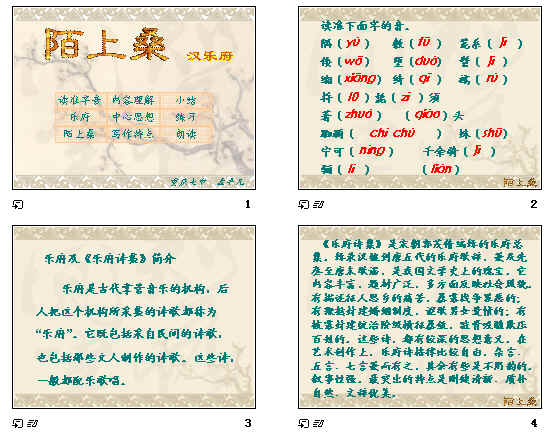 陌上桑 汉乐府
读准字音 内容理解 小结
乐府 中心思想 练习
陌上桑 写作特点 朗读
1
读准下面字的音。
隅（yú） 敷（fū） 笼系（jì）
倭（wō） 堕（duò） 髻（jì）
缃（xiāng） 绮（qǐ） 襦（rú）
捋（lǚ）髭（zī）须
著（zhuó）（qiào）头
踟蹰（chí chú） 姝（shū）
宁可（nìng） 千余骑（jì）
2
陌上桑
乐府及《乐府诗集》简介
乐府是古代掌管音乐的机构，后
人把这个机构所采集的诗歌都称为
“乐府”。它既包括采自民间的诗歌，
也包括那些文人制作的诗歌。这些诗，
一般都配乐歌唱。
3
《乐府诗集》是宋朝郭茂倩编辑的乐府总
集，辑录汉魏到唐五代的乐府歌辞，兼及先
秦至唐末歌谣，是我国文学史上的瑰宝。它
内容丰富，题材广泛，多方面反映社会风貌。
有描述征人思乡的痛苦、暴露战争罪恶的；
百姓的。这些诗，都有较深的思想意义。在
艺术创作上，乐府诗格律比较自由，杂言、
五言、七言兼而有之，其余有些是不用韵的。
叙事性强。最突出的特点是刚健清新、质朴
自然、文辞优美。
陌上桑
4